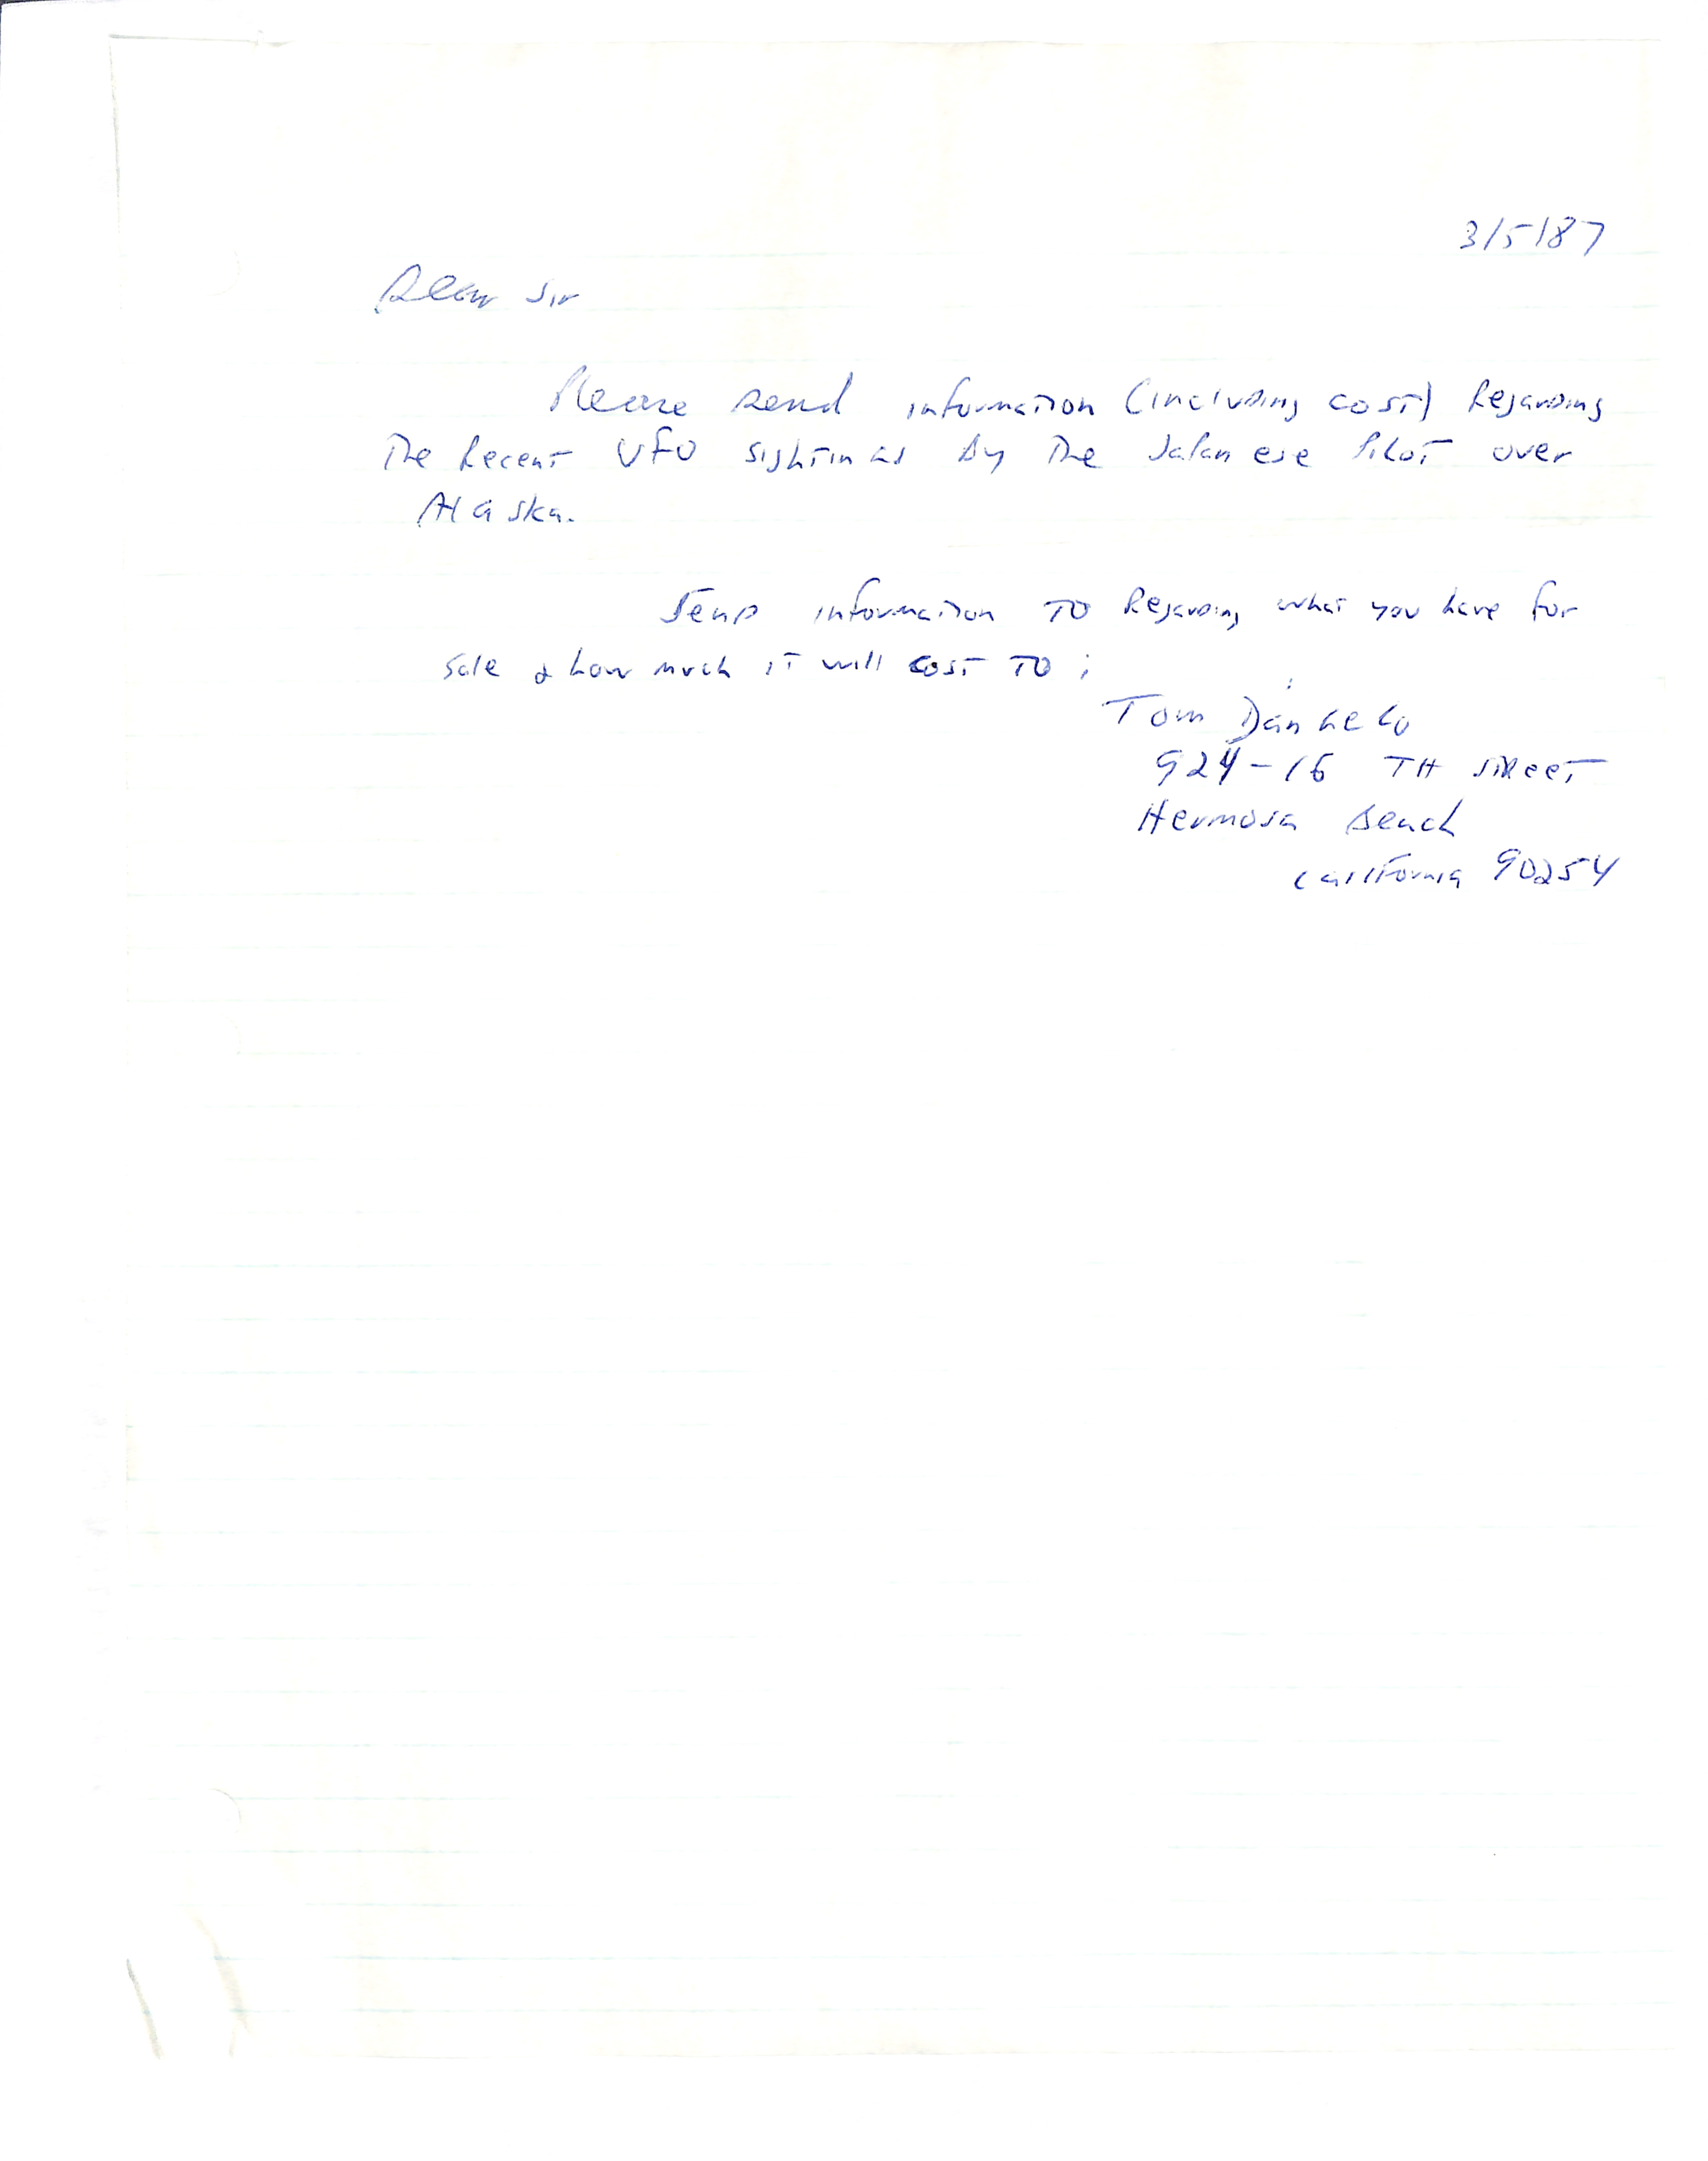 3/5/87
Dear Sir
Please send information (including cost) Regarding
The Recent UFO sightings By The Japanese Pilot over
Alaska.
Send information TO Regarding what you have for
sale & how much it will cost TO:
Tom
924-16 TH Street
Hermosa Beach
California 90254